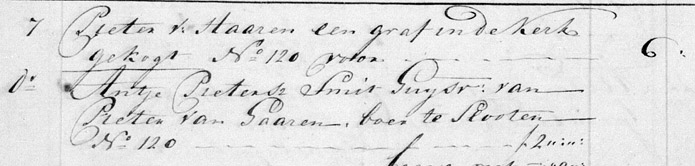 7 Pieter v: Haaren een graf in de kerk
gekogt No 120 voor 6:
do Antje Pieters Smit Huysvr: van
Pieter van Haaren, boer te Slooten
No 120 f 2:"